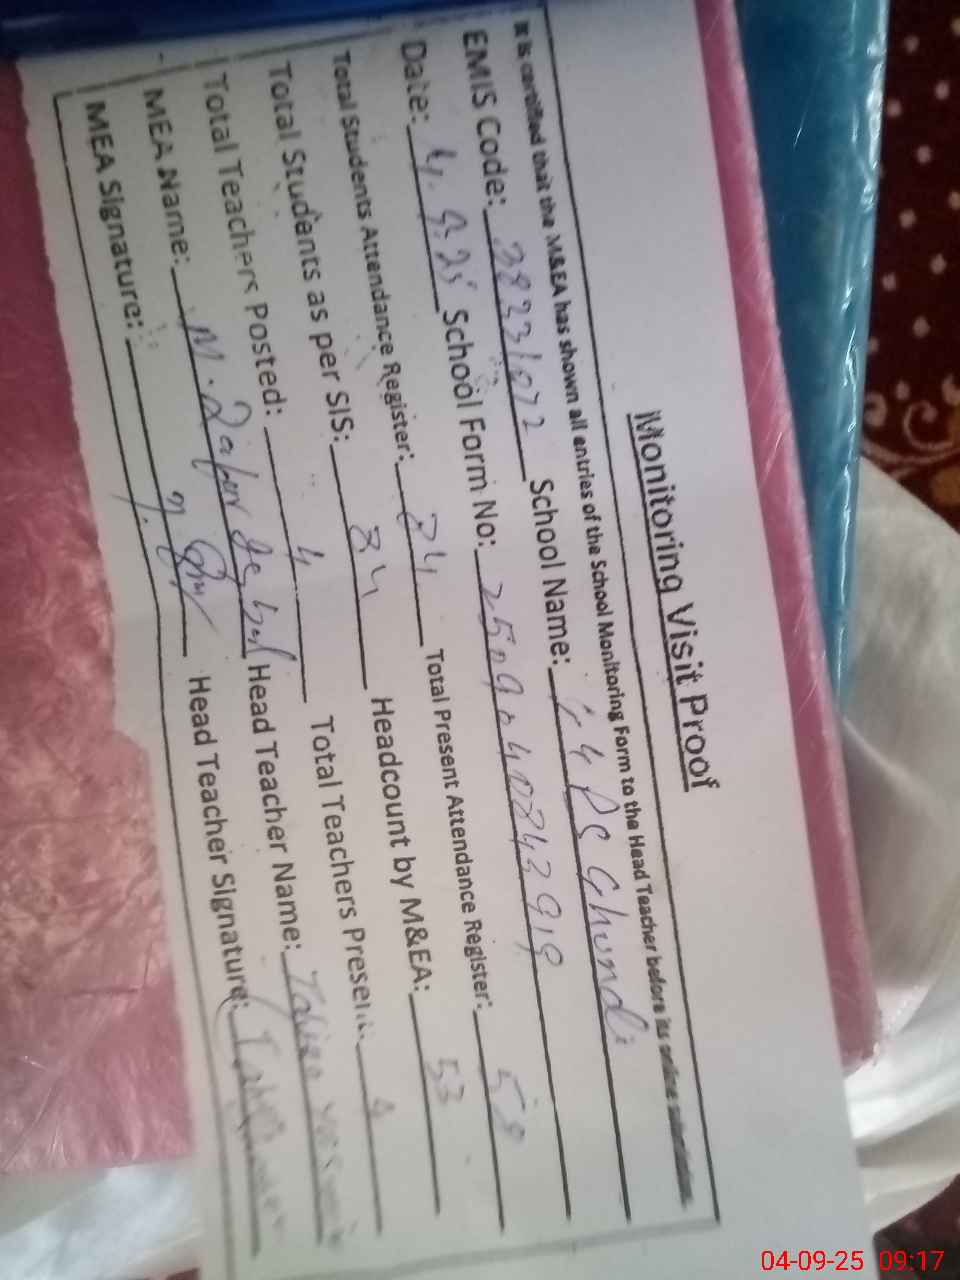 Monitoring Visit Proof
It is certified that the M&EA has shown all entries of the School Monitoring Form to the Head Teacher before its online submission.
EMIS Code: 38231072 School Name: Ghundi
Date: 4.9.25 School Form No:
Total Students Attendance Register: 84 Total Present Attendance Register:
Total Students as per SIS: 84 Headcount by M&EA: 53
Total Teachers Posted: 4 Total Teachers Present: 4
MEA Name: M. Head Teacher Name:
MEA Signature: Head Teacher Signature:
04-09-25 09:17